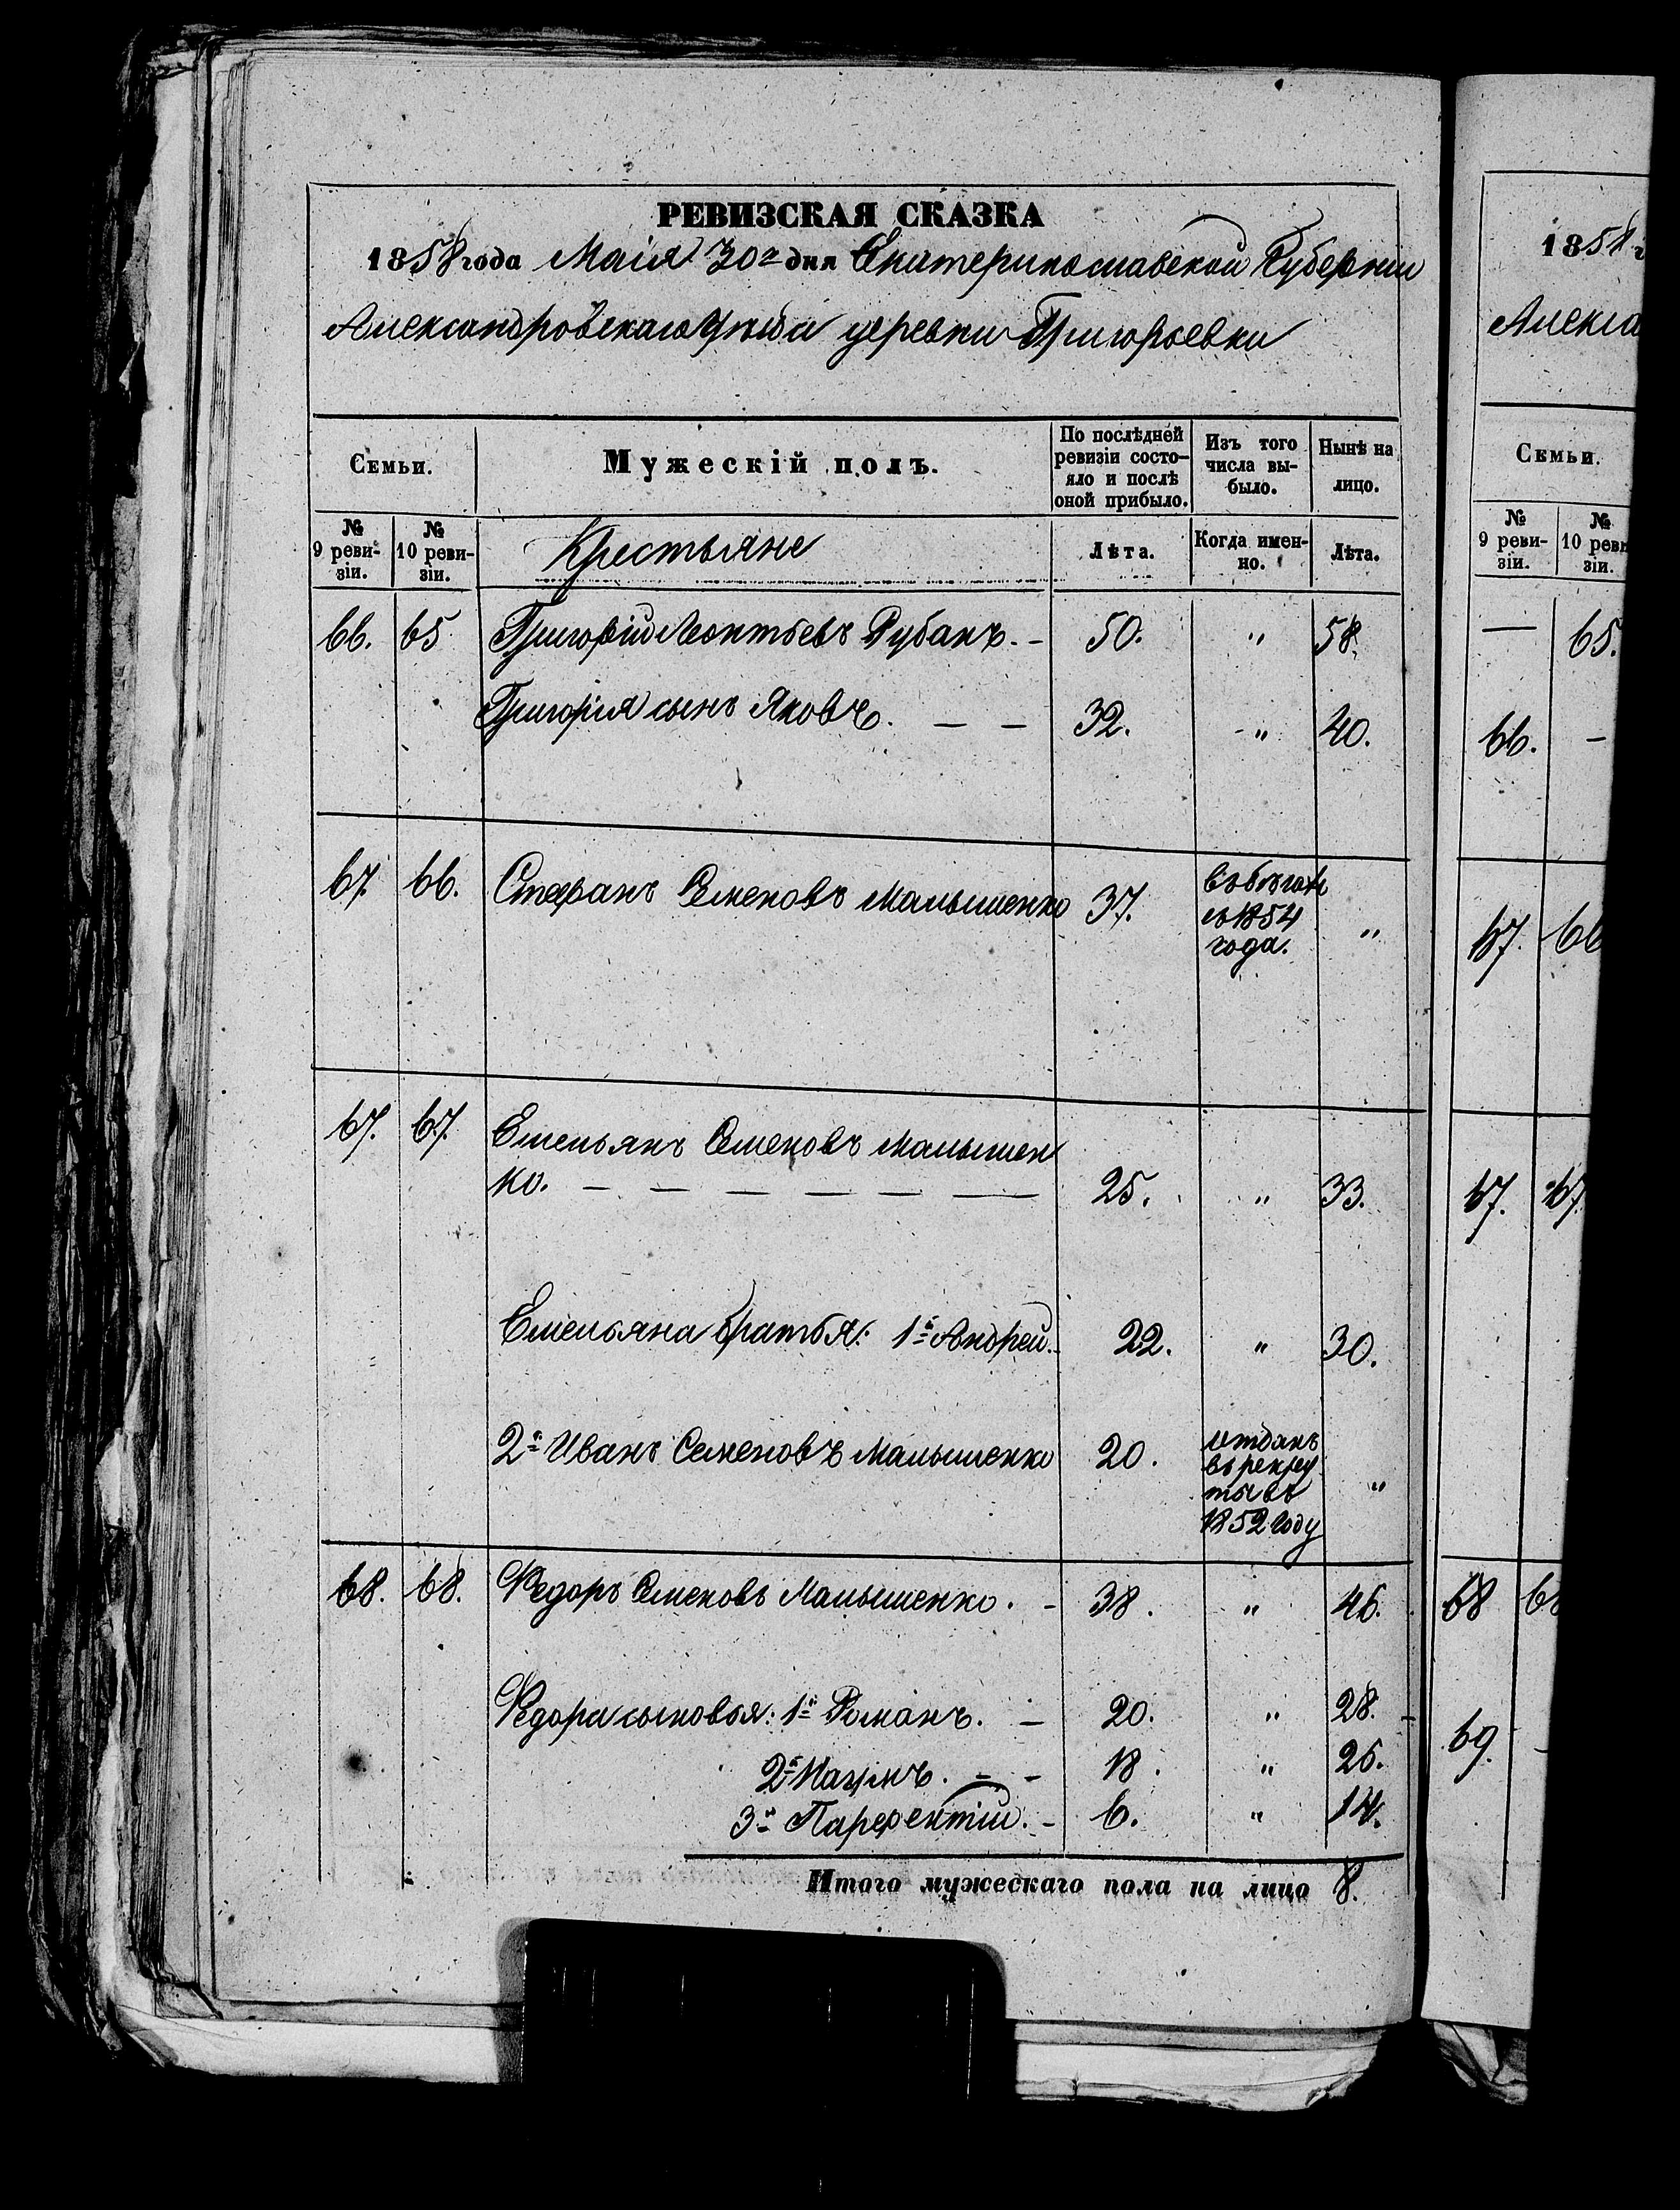 РЕВИЗСКАЯ СКАЗКА
1858 года Маія 30го дня Екатеринославской Губерніи
Александровскаго Уѣзда деревни Григорьевки
Семьи.
Мужескій полъ.
По послѣдней ревизіи состо-
яло и послѣ оной прибыло.
Изъ того числа вы-
было.
Нынѣ на лицо.
№ 9 реви-
зіи.
№ 10 реви-
зіи.
Крестьяне
Лѣта.
Когда имен-
но.
Лѣта.
66. 65 Григорій Леонтьевъ Рубанъ. - 50. " 58.
Григорія сынъ Яковъ. — — 32. " 40.
67. 66. Стефанъ Семеновъ Малышенко 37. въ бѣгахъ
съ 1854
года. "
67. 67. Емельянъ Семеновъ Малышен
ко. — — — — — — 25. " 33.
Емельяна братья: 1й Андрей. 22. " 30.
2й Иванъ Семеновъ Малышенко 20. отданъ
въ рекру
ты въ
1852 году "
68. 68. Федоръ Семеновъ Малышенко. - 38. " 46.
Федора сыновья: 1й Романъ. — 20. " 28.
2й Наумъ. - - 18. " 26.
3й Парфентій. - 6. " 14.
Итого мужескаго пола на лицо 8.
1858 г
Алекса
Семьи.
№ 9 реви-
зіи.
№ 10 реви
зіи.
— 65.
66. —
67. 66
67. 67.
68 68
69. -